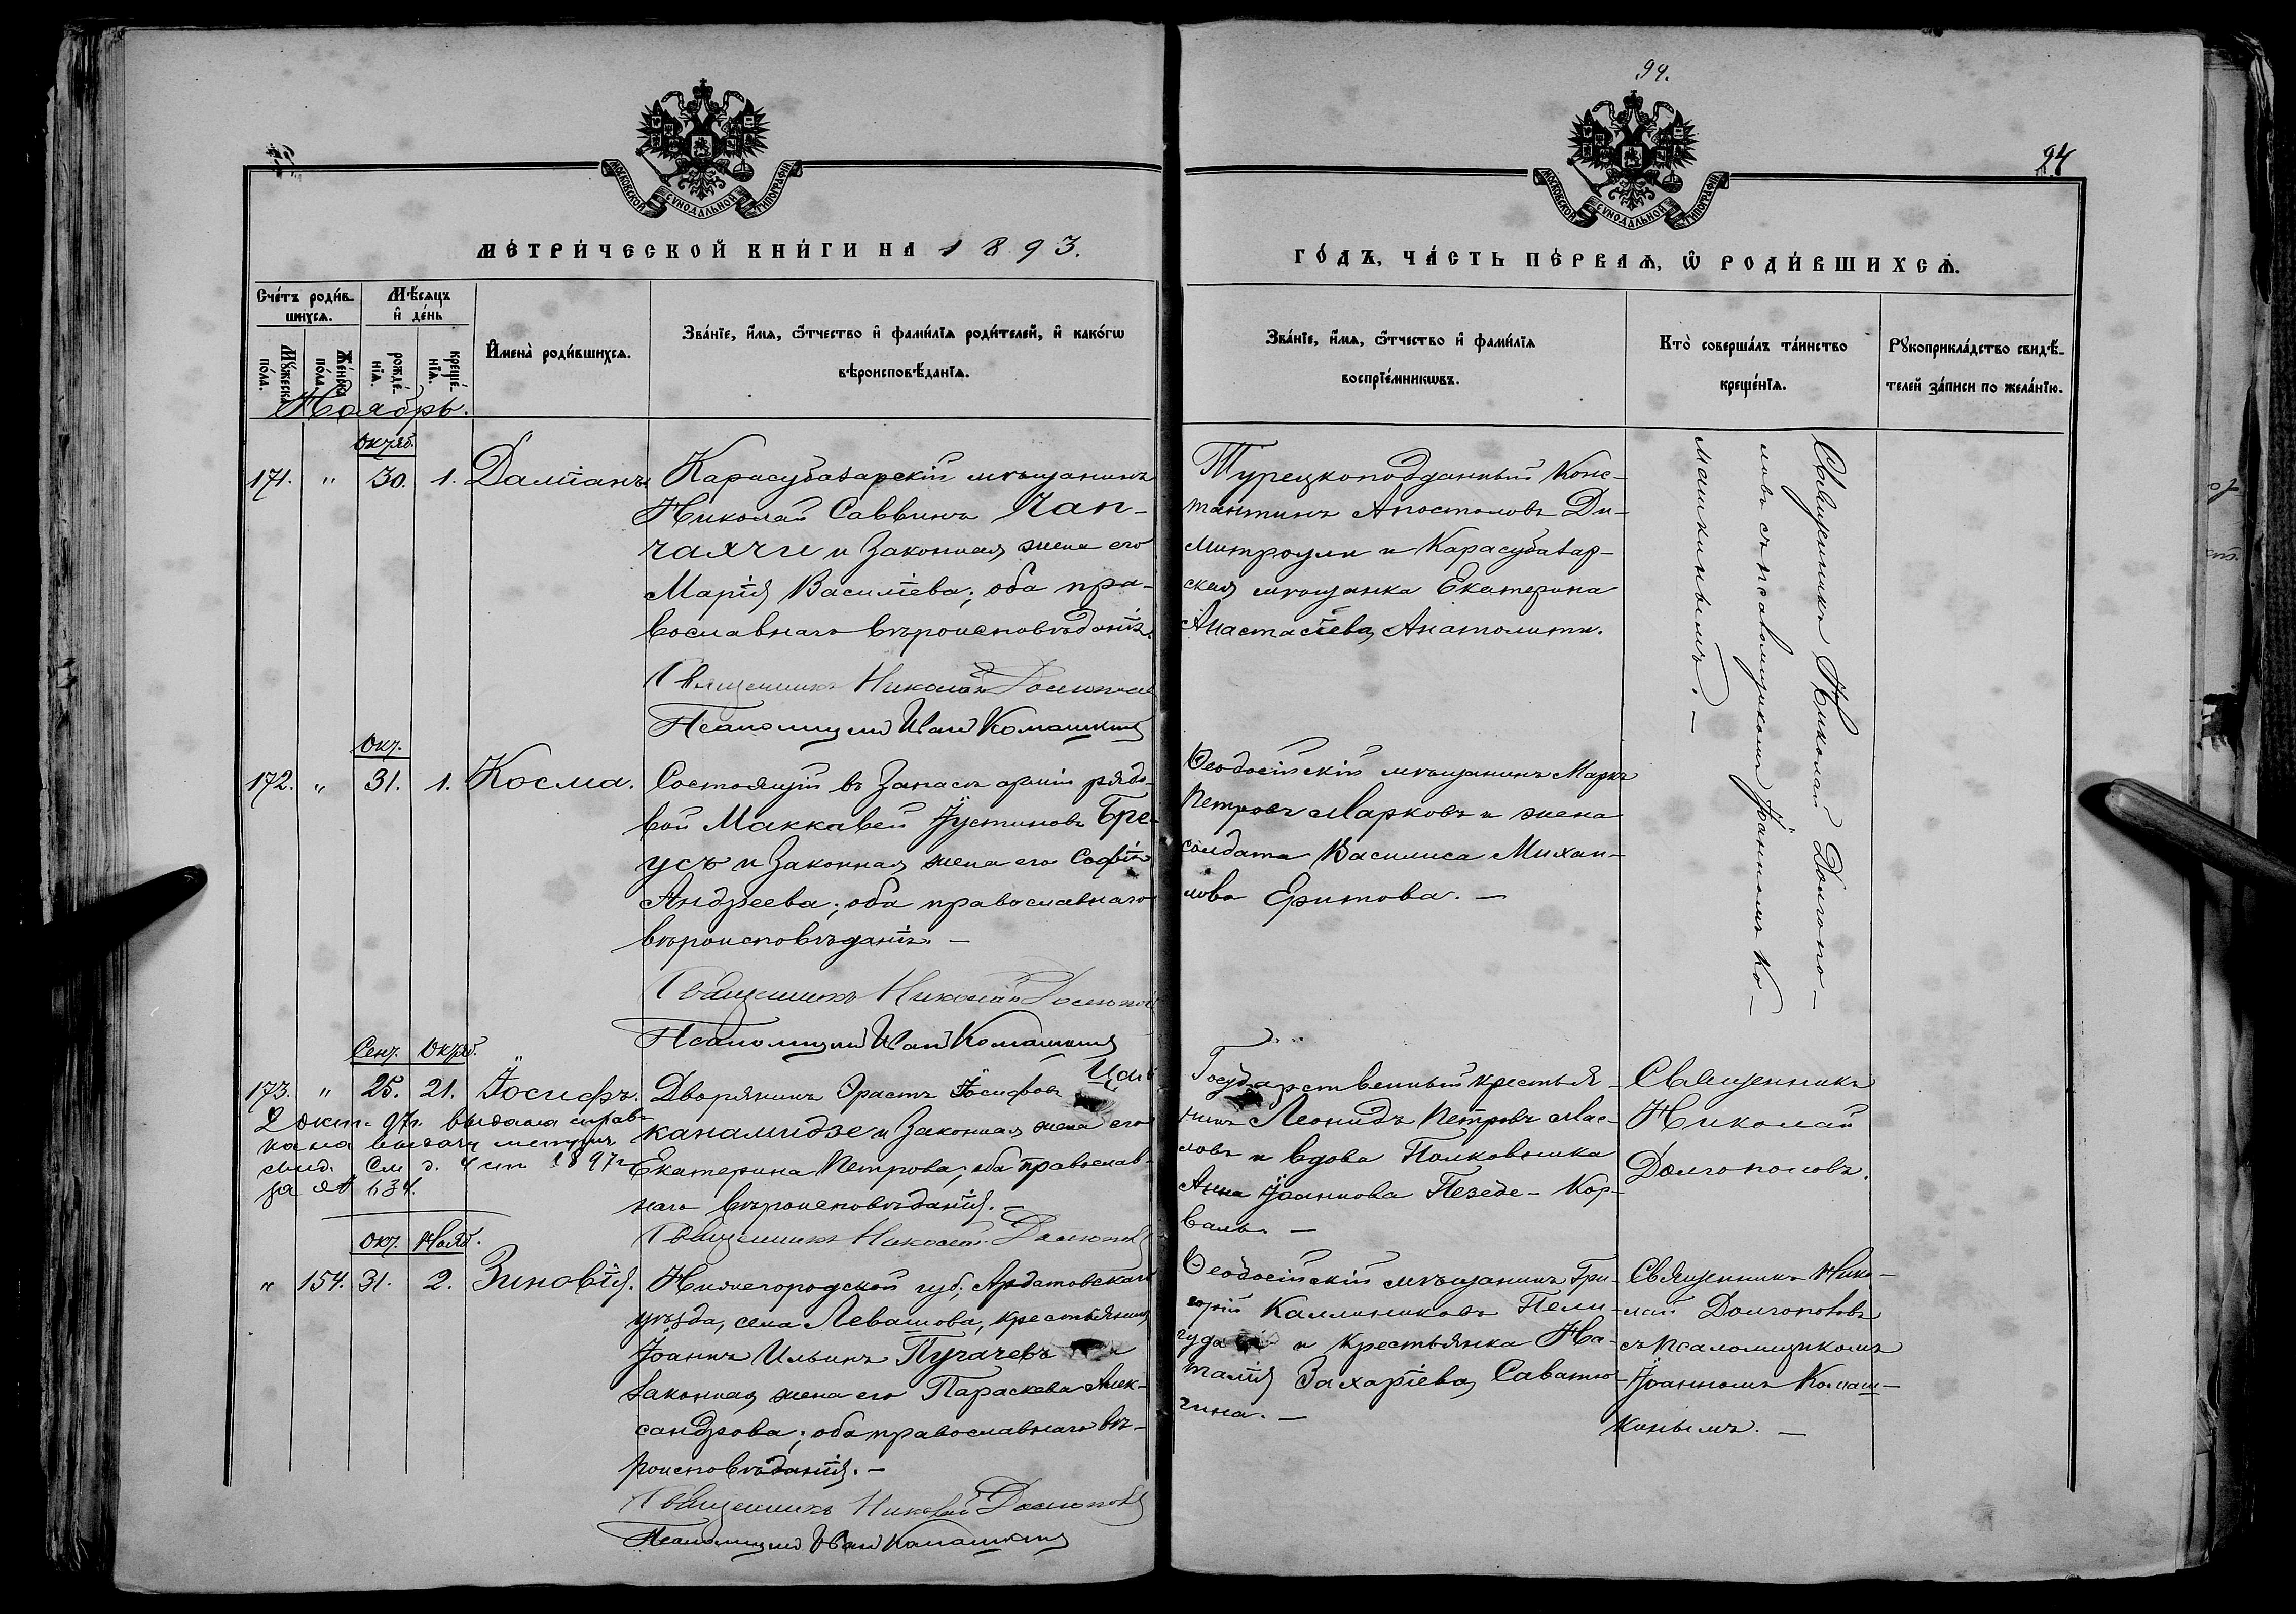 МОСКОВСКОЙ СѴНОДАЛЬНОЙ ТИПОГРАФІИ
МЕТРИ́ЧЕСКОЙ КНИ́ГИ НА 1893.
Сче́тъ роди́в-
шихсѧ.
Мѣ́сѧцъ
и҆ де́нь
Мꙋ́жеска по́ла.
Же́нска по́ла.
рожде́-
нїѧ.
креще́-
нїѧ.
И҆мена̀ роди́вшихсѧ.
Зва́нїе, и҆́мѧ, ѻ҆́тчество и҆ фами́лїѧ роди́телей, и҆ како́гѡ
вѣроисповѣ́данїѧ.
Ноябрь.
Октяб.
171. " 30. 1. Даміанъ.
Карасубазарскій мѣщанинъ
Николай Саввинъ Чап-
чахчи и законная жена его
Марія Василіева; оба пра-
вославнаго вѣроисповѣданія.
Священникъ Николай Долгопол
Псаломщикъ Иван Комашкин
Окт.
172. " 31. 1. Косма.
Состоящій въ запасѣ арміи рядо-
вой Маккавей Іустиновъ Бре-
усъ и законная жена его Софія
Андреева; оба православнаго
вѣроисповѣданія. —
Священникъ Николай Долгопол
Псаломщикъ Иван Комашкин
Сент. Октяб.
173. " 25. 21. Іосифъ.
Дворянинъ Эрастъ Іосифовъ Цис
канамидзе и законная жена его
Екатерина Петрова; оба православ-
наго вѣроисповѣданія. —
Священникъ Николай Долгопол
2 окт. 97г. выдана справ-
ка на выдачу метрич
свид. См д. 1897г
за № 134.
Окт. Нояб.
" 154. 31. 2. Зиновія.
Нижегородской губ. Ардатовскаго
уѣзда, села Левашова, крестьянинъ
Іоаннъ Ильинъ Пугачевъ и
законная жена его Параскева Алек-
сандрова; оба православнаго вѣ-
роисповѣданія. —
Священникъ Николай Долгопол
Псаломщикъ Иван Комашкин
94.
94
МОСКОВСКОЙ СѴНОДАЛЬНОЙ ТИПОГРАФІИ
ГО́ДЪ, ЧА́СТЬ ПЕ́РВАѦ, Ѡ҆ РОДИ́ВШИХСѦ.
Зва́нїе, и҆́мѧ, ѻ҆́тчество и҆ фами́лїѧ
воспрїе́мникѡвъ.
Кто̀ соверша́лъ та́инство
креще́нїѧ.
Рꙋкоприкла́дство свидѣ́-
телей за́писи по жела́нїю.
Турецкоподданный Конс-
тантинъ Апостоловъ Ди-
митроули и Карасубазар-
ская мѣщанка Екатерина
Анастасіева Анатолити.
Священникъ Николай Долгопо-
ловъ съ псаломщикомъ Іоанномъ Ко-
машкинымъ. —
Ѳеодосійскій мѣщанинъ Маркъ
Петровъ Марковъ и жена
солдата Василиса Михаи-
лова Еритова. —
Государственный крестья-
нинъ Леонидъ Петровъ Мас-
ловъ и вдова Полковника
Анна Іоаннова Пезеде-Кор-
валь. —
Священникъ
Николай
Долгополовъ.
Ѳеодосійскій мѣщанинъ Гри-
горій Каллиниковъ Пели-
гуда и крестьянка На-
талія Захаріева Саватю-
гина. —
Священникъ Нико-
лай Долгополовъ
съ псаломщикомъ
Іоанномъ Комаш-
кинымъ. —